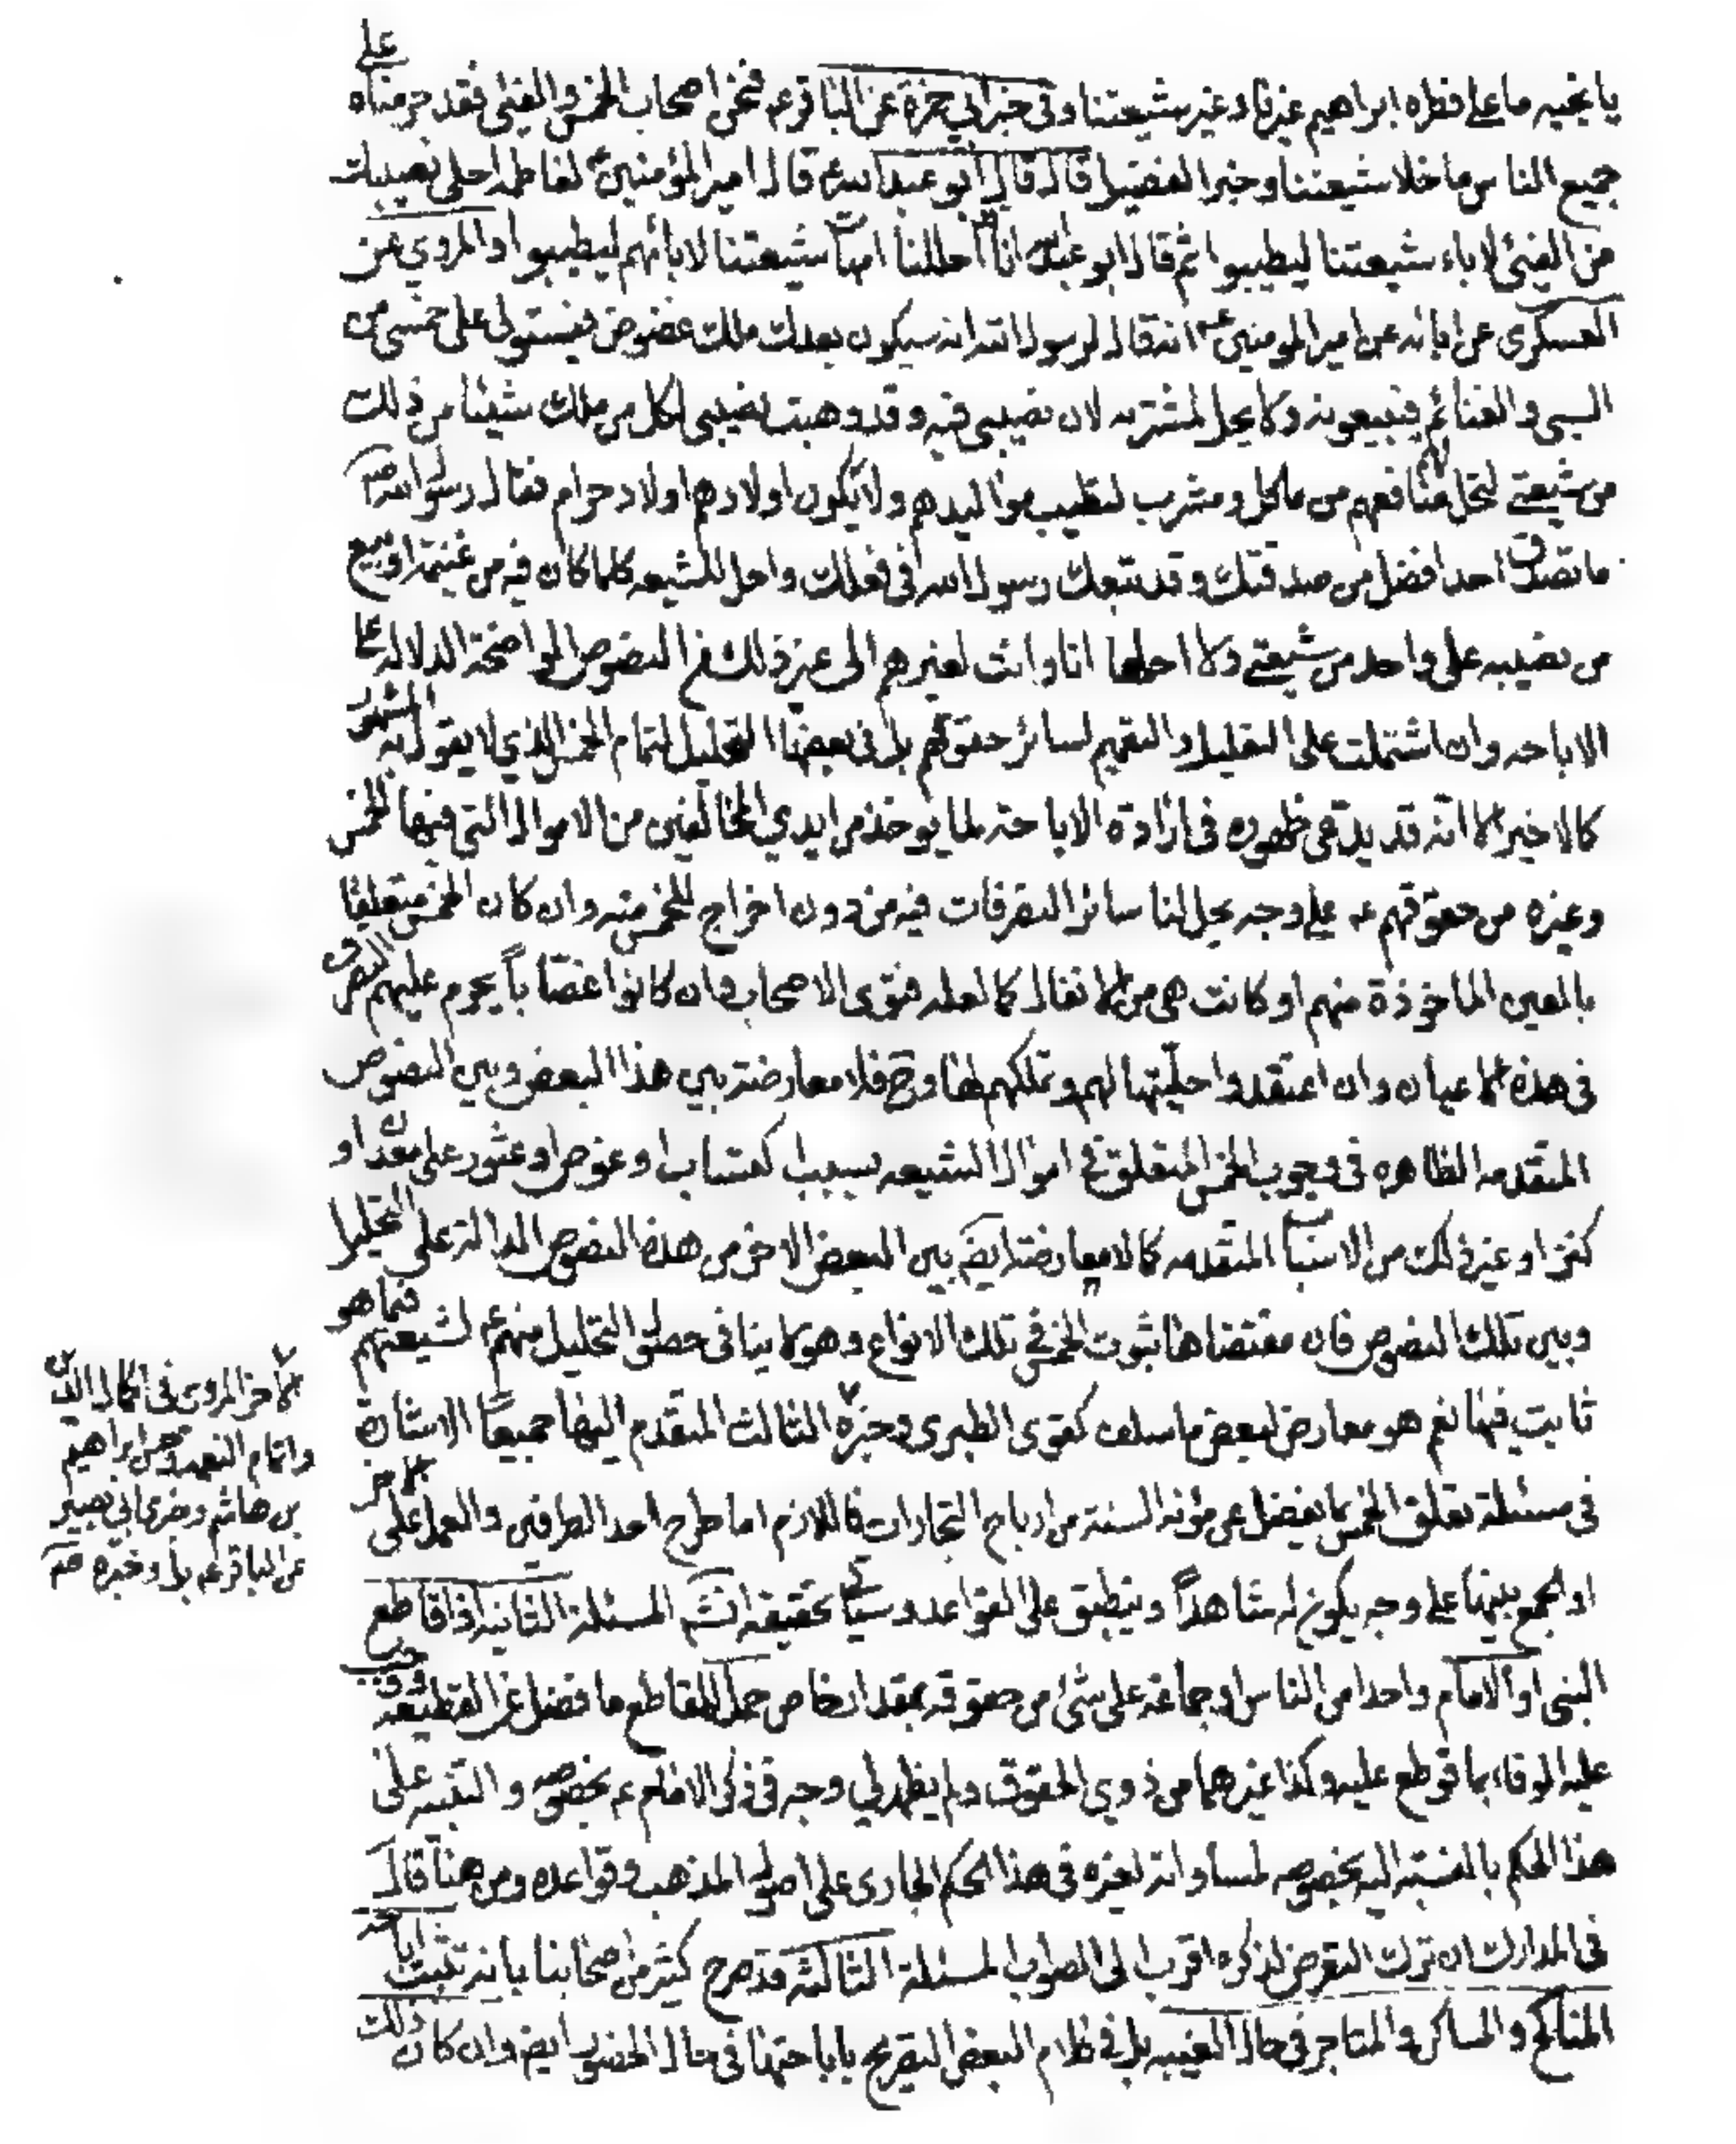 يا نجيه ما على فطره ابراهيم غيرنا وغير شيعتنا وفي خبر ابي حمزة عن الباقر ع فنحن اصحاب الخمس والفيئ فقد حرمناه على
جميع الناس ما خلا شيعتنا وخبر الفضيل قال قال ابو عبدالله ع قال امير المؤمنين ع لفاطمه احلي نصيبك
من الفيئ لاباء شيعتنا ليطيبوا ثم قال ابو عبدالله انا احللنا امهات شيعتنا لابائهم ليطيبوا والمروي عن
العسكري عن ابائه عن امير المومنين ع انه قال لرسول الله انه سيكون بعدك ملك عضوض فيستولى على خمسي من
السبي والغنائم فيبيعونه ولا يحل لمشتريه لان نصيبي فيه وقد وهبت نصيبي لكل من ملك شيئا من ذلك
من شيعتي لتحل لهم منافعهم من ماكل ومشرب لتطيب مواليدهم ولا يكون اولادهم اولاد حرام فقال رسول الله ص
ما تصدق احد افضل من صدقتك وقد تبعك رسول الله في فعلك واحل للشيعه كلما كان فيه من غنيمة او بيع
من نصيبه على واحد من شيعتي ولا احلها انا وانت لغيرهم الى غير ذلك من النصوص الواضحة الدلاله على
الاباحه وان اشتملت على التعليل والتعميم لسائر حقوقهم بل في بعضها التحليل لتمام الخمس الذي لا يقول به المشهور
كالاخير الا انه قد يدعى ظهوره في ارادة الاباحة لما يوخذ من ايدي المخالفين من الاموال التي فيها الخمس
وغيره من حقوقهم ع على وجه يحل لنا سائر التصرفات فيه من دون اخراج للخمس منه وان كان الخمس متعلقا
بالعين الماخوذة منهم او كانت هي من الانفال كما لعله فتوى الاصحاب وان كانوا غصّاباً يحرم عليهم التصرف
في هذه الاعيان وان اعتقدوا حليّتها لهم وتملكهم لها وح فلا معارضة بين هذا البعض وبين النصوص
المتقدمه الظاهره في وجوب الخمس المتعلق في اموال الشيعه بسبب اكتساب او غوص او عثور على معدن او
كنز او غير ذلك من الاسباب المتقدمه كما لا معارضة ايض بين البعض الاخر من هذه النصوص الدالة على التحليل
وبين تلك النصوص فان مقتضاها ثبوت الخمس في تلك الانواع وهو لا ينافى حصول التحليل منهم ع لشيعتهم فيما هو
ثابت فيها نعم هو معارض لبعض ما سلف كقوى الطبري وخبره الثالث المتقدم اليها جميعًا الاشارة
في مسئلة تعلق الخمس بما يفضل عن مؤنه السنة من ارباح التجارات فاللازم اما طرح احد الطرفين والعمل على الاخر
او الجمع بينهما على وجه يكون له شاهداً وينطبق على القواعد وسياتي تحقيقه انش المسئلة الثانيه اذا قاطع
النبى او الامام واحدا من الناس او جماعه على شئ من حقوقه بمقدار خاص حل للمقاطع ما فضل عن القطيعة ووجب
عليه الوفاء بما قوطع عليه وكذا غيرهما من ذوي الحقوق ولم يظهر لي وجه في ذكر الامام ع بخصوصه والتنبيه على
هذا الحكم بالنسبة اليه بخصوصه لمساواته لغيره في هذا الحكم الجارى على اصول المذهب وقواعده ومن هنا قال
في المدارك ان ترك التعرض لذكره اقرب الى الصواب المسئلة الثالثة قد صرح كثير من اصحابنا بانه تثبت اباحة
المناكح والمساكن والمتاجر في حال الغيبه بل في كلام البعض التصريح باباحتها في حال الحضور ايض وان كان ذلك
كالاخر المروي في اكمال الدين
واتمام النعمه عن ابراهيم
بن هاشم وخبر ابي بصير
عن الباقر ع بل وخبره